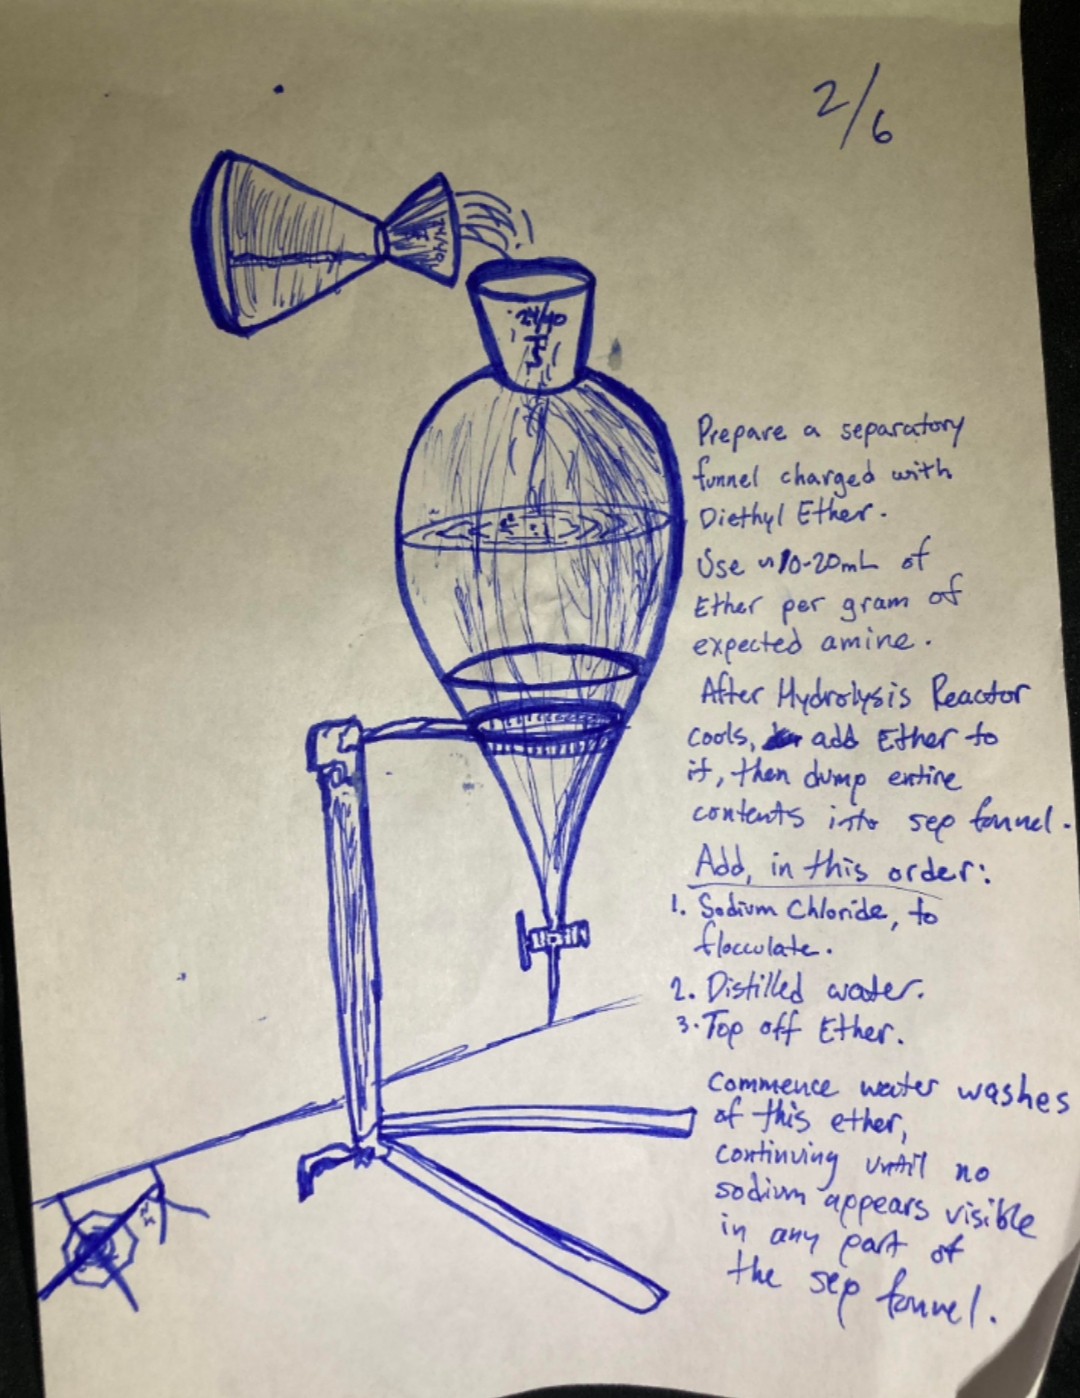 2/6
24/40
Prepare a separatory
funnel charged with
Diethyl Ether.
Use ~10-20mL of
Ether per gram of
expected amine.
After Hydrolysis Reactor
cools, add Ether to
it, then dump entire
contents into sep funnel.
Add, in this order:
1. Sodium Chloride, to
flocculate.
2. Distilled water.
3. Top off Ether.
Commence water washes
of this ether,
continuing until no
sodium appears visible
in any part of
the sep funnel.